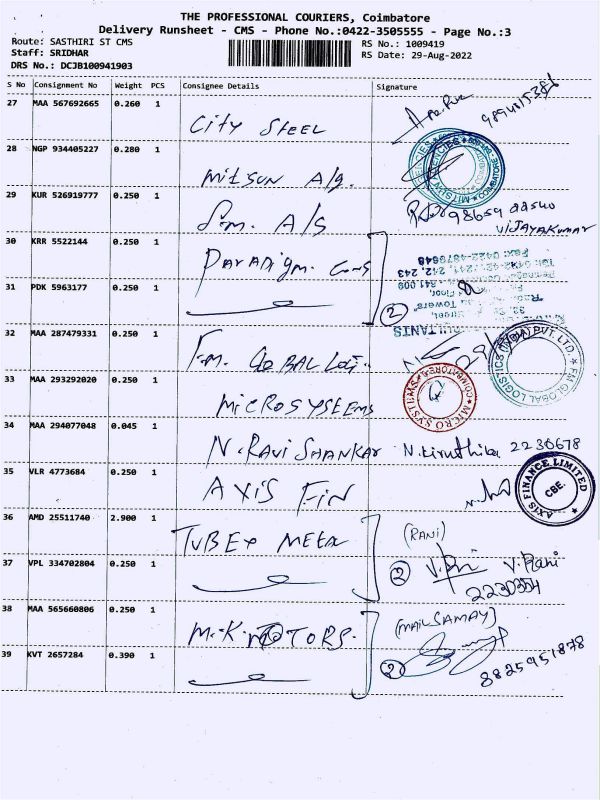 THE PROFESSIONAL COURIERS, Coimbatore
Delivery Runsheet - CMS - Phone No.:0422-3505555 - Page No.:3
Route: SASTHIRI ST CMS
RS No.: 1009419
Staff: SRIDHAR
RS Date: 29-Aug-2022
DRS No.: DCJB100941903
S No Consignment No Weight PCS Consignee Details Signature
27 MAA 567692665 0.260 1
City Steel
28 NGP 934405227 0.280 1
Mitsun A/g.
29 KUR 526919777 0.250 1
S.m. A/S
98659 22540
VIJAYAKUMAR
30 KRR 5522144 0.250 1
Paradigm. Cons
31 PDK 5963177 0.250 1
2
32 MAA 287479331 0.250 1
F.m. GOBAL Loti.
33 MAA 293292020 0.250 1
MICROSYSTEEMS
MICRO SYSTEMS COIMBATORE
34 MAA 294077048 0.045 1
N. RAVI SHANKAR N.kiruthika 2230678
35 VLR 4773684 0.250 1
AXIS FIN
AXIS FINANCE LIMITED
CBE.
36 AMD 25511740 2.900 1
TUBEX METAL
(RANI)
37 VPL 334702804 0.250 1
2 V.Rani
2230354
38 MAA 565660806 0.250 1
M.K. MOTORS.
(MAILSAMAY)
39 KVT 2657284 0.390 1
2
8825951878